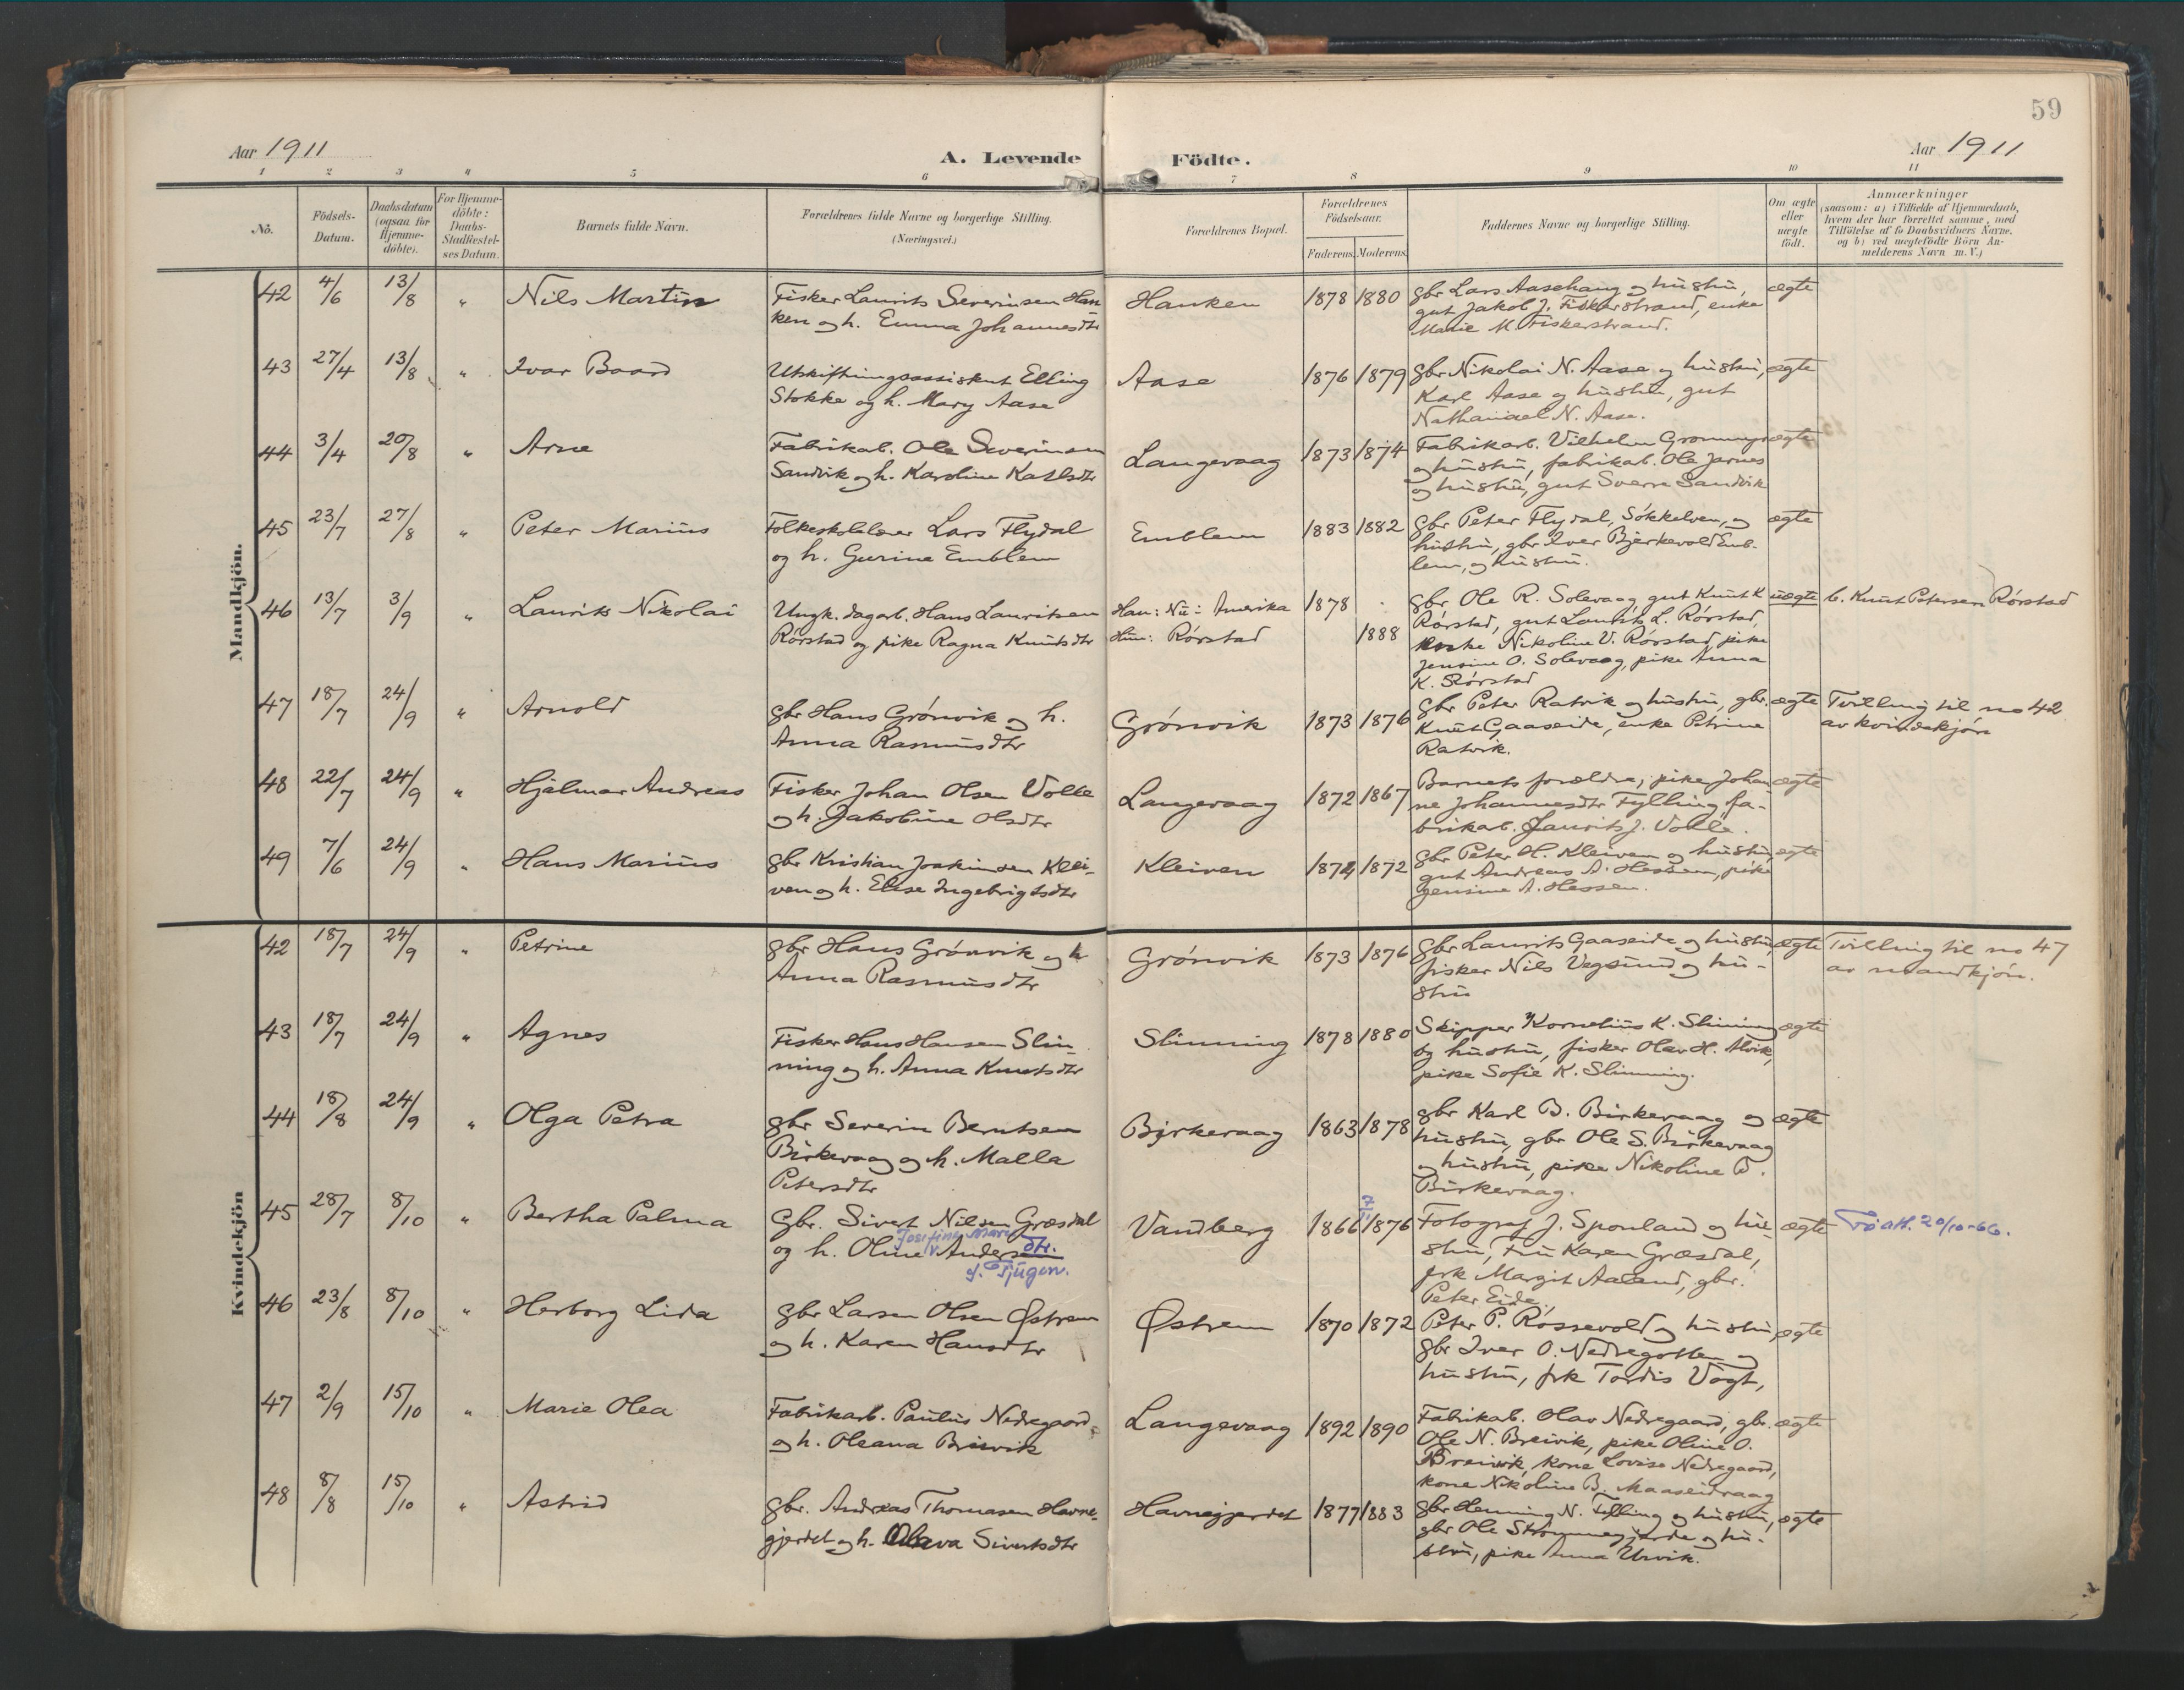 59
Aar 1911
A. Levende
Födte.
Aar 1911
1 2 3 4 5 6 7 8 9 10 11
No.
Födsels-
Datum.
Daabsdatum
(ogsaa for
Hjemme-
döbte).
For Hjemme-
döbte:
Daabs-
Stadfæstel-
ses Datum.
Barnets fulde Navn.
Forældrenes fulde Navne og borgerlige Stilling.
(Næringsvei.)
Forældrenes Bopæl.
Forældrenes
Födselsaar.
Faderens. Moderens.
Faddernes Navne og borgerlige Stilling.
Om ægte
eller
uægte
födt.
Anmærkninger
(saasom: a) i Tilfælde af Hjemmedaab,
hvem der har forrettet samme, med
Tilföielse af to Daabsvidners Navne.
og b) ved uægtefödte Börn An-
melderens Navn m. V.)
Mandkjön.
42 4/6 13/8 " Nils Martin
Fisker Laurits Severinsen Han
ken og h. Emma Johannesdtr
Hanken 1878 1880
gbr Lars Aasehaug og hustru,
gut Jakob J. Fiskerstrand, enke
Marie M. Fiskerstrand.
ægte
43 27/4 13/8 " Ivar Baard
Utskiftningsassistent Elling
Stokke og h. Mary Aase
Aase 1876 1879
gbr Nikolai N. Aase og hustru,
Karl Aase og hustru, gut
Nathanael N. Aase.
ægte
44 3/4 20/8 " Arne
Fabrikarb. Ole Severinsen
Sandvik og h. Karoline Karlsdtr
Langevaag 1873 1874
Fabrikarb. Vilhelm
og hustru, fabrikarb. Ole Jarnes
og hustru, gut Sverre Sandvik
ægte
45 23/7 27/8 " Peter Marius
Folkeskolelærer Lars Flydal
og h. Gurine Emblem
Emblem 1883 1882
gbr Peter Flydal, Sökkelven, og
hustru, gbr Iver Bjerkevold Emb-
lem, og hustru.
ægte
46 13/7 3/9 " Laurits Nikolai
Ungk. dagarb. Hans Lauritsen
Rörstad og pike Ragna Knutsdtr
Han: Nu: Amerika
Hun: Rörstad
1878
1888
gbr Ole R. Solevaag gut Knut K
Rörstad, gut Laurits L. Rörstad,
enke Nikoline V. Rörstad, pike
Jensine O. Solevaag, pike Anna
K. Rörstad
uægte
b. Knut Petersen Rörstad
47 18/7 24/9 " Arnold
gbr Hans Grönvik og h.
Anna Rasmusdtr
Grönvik 1873 1876
gbr Peter Ratvik og hustru, gbr.
Knut Gaaseide, enke Petrine
Ratvik.
ægte
Tvilling til no 42
av kvindekjön
48 22/7 24/9 " Hjalmar Andreas
Fisker Johan Olsen Volle
og h. Jakobine Olsdtr
Langevaag 1872 1867
Barnets forældre, pike Johan
ne Johannesdtr Fylling, fa-
brikarb. Laurits J. Volle.
ægte
49 7/6 24/9 " Hans Marius
gbr Kristian Joakimsen Klei-
ven og h. Elise Ingebrigtsdtr
Kleiven 1874 1872
gbr Peter H. Kleiven og hustru,
gut Andreas A. Hessen, pike
Jensine A. Hessen.
ægte
Kvindekjön
42 18/7 24/9 " Petrine
gbr Hans Grönvik og h
Anna Rasmusdtr
Grönvik 1873 1876
gbr Laurits Gaaseide og hustru,
fisker Nils Vegsund og hu-
stru
ægte
Tvilling til no 47
av mandkjön.
43 18/7 24/9 " Agnes
Fisker Hans Hansen Slin-
ning og h. Anna Knutsdtr
Slinning 1878 1880
Skipper Kornelius K. Slinning
og hustru, fisker Olav H. Alvik,
pike Sofie K. Slinning.
ægte
44 18/8 24/9 " Olga Petra
gbr Severin Berntsen
Birkevaag og h. Malla
Petersdtr
Birkevaag 1863 1878
gbr Karl B. Birkevaag og
hustru, gbr Ole S. Birkevaag
og hustru, pike Nikoline B.
Birkevaag.
ægte
45 28/7 8/10 " Bertha Palma
Gbr. Sivert Nilsen Græsdal
Josefine
og h. Oline Anders dtr.
f. Tjugen.
Vandberg 1866 1876
7
Fotograf J. Sponland og hu-
stru, Fru Karen Græsdal,
frk Margit Aaland, gbr.
Peter Eide.
ægte
Frö att. 20/10-66.
46 23/8 8/10 " Herborg Lida
gbr Larsen Olsen Østrem
og h. Karen Hansdtr
Østrem 1870 1872
Peter P. Rössevold og hustru,
gbr Iver O. Nedregotten og
hustru, frk Tordis Vogt,
ægte
47 2/9 15/10 " Marie Olea
Fabrikarb. Paulus Nedregaard
og h. Oleana Breivik
Langevaag 1892 1890
Fabrikarb. Olav Nedregaard, gbr.
Ole N. Breivik, pike Oline O.
Breivik, kone Lovise Nedregaard,
kone Nikoline B. Maaseidvaag
ægte
48 8/8 15/10 " Astrid
gbr. Andreas Thomasen Havne-
gjerdet og h. Olava Sivertsdtr
Havnegjerdet 1877 1883
gbr Henning N. Fylling og hustru,
gbr Ole Strømmegjerde og hu-
stru, pike Anna Urvik.
ægte